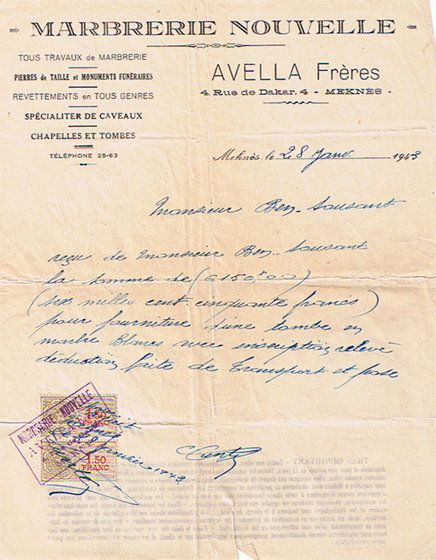 MARBRERIE NOUVELLE
TOUS TRAVAUX DE MARBRERIE
PIERRES DE TAILLE ET MONUMENTS FUNÉRAIRES
REVETTEMENTS EN TOUS GENRES
SPÉCIALITER DE CAVEAUX
CHAPELLES ET TOMBES
TÉLÉPHONE 25-63
AVELLA Frères
4 Rue de Dakar, 4 - MEKNES -
Meknès le 28 Janv 1943
Monsieur Ben-Sousant
reçu de Monsieur Ben-Sousant
la somme de (6150,00)
(six milles cent cinquante francs)
pour fourniture d'une tombe en
marbre blanc avec inscription relevé
déduction faite de transport et pose
MARBRERIE NOUVELLE
1.50
FRANC
TRES IMPORTANT